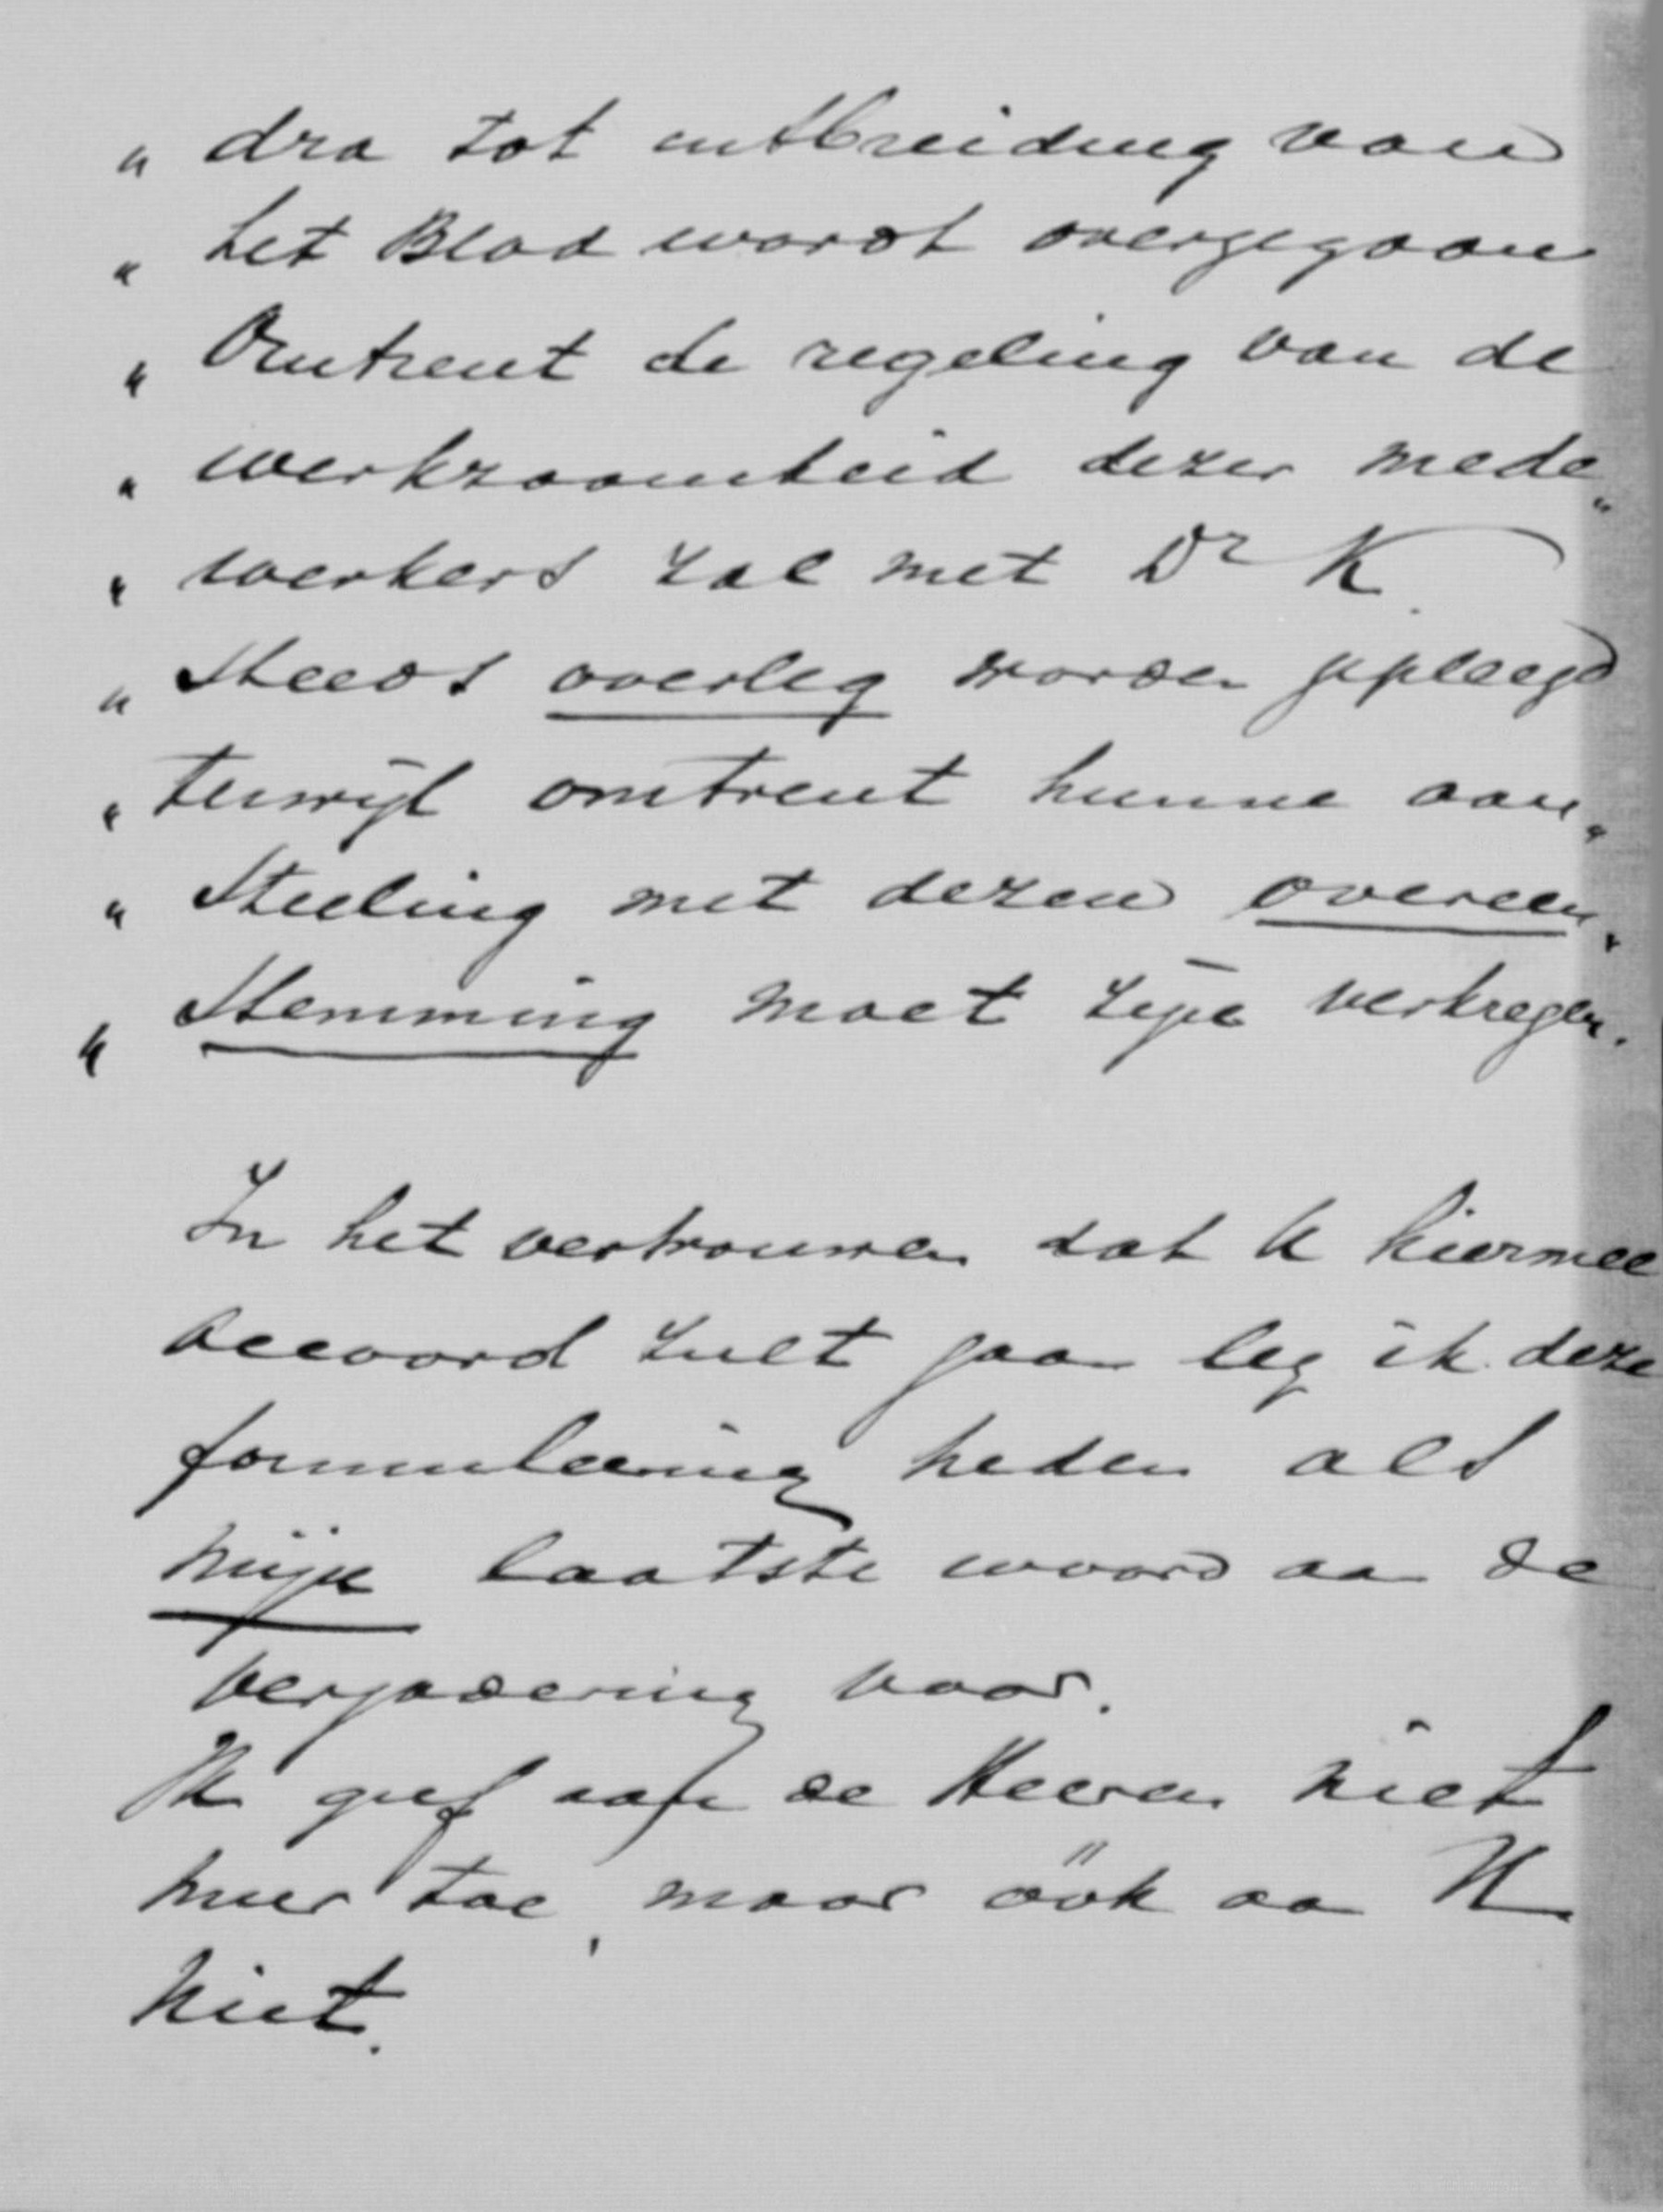 „ dra tot uitbreiding van
„ het Blad wordt overgegaan
„ Omtrent de regeling van de
„ werkzaamheid dezer mede„
„ werkers zal met Dr K.
„ steeds overleg worden gepleegd
„ terwijl omtrent hunne aan„
„ stelling met dezen overeen„
„ stemming moet zijn verkregen.
In het vertrouwen dat U hiermee
accoord zult gaan leg ik deze
formuleering heden als
mijn laatste woord aan de
vergadering voor.
Ik geef aan de Heeren niet
meer toe, maar óók aan U
niet.